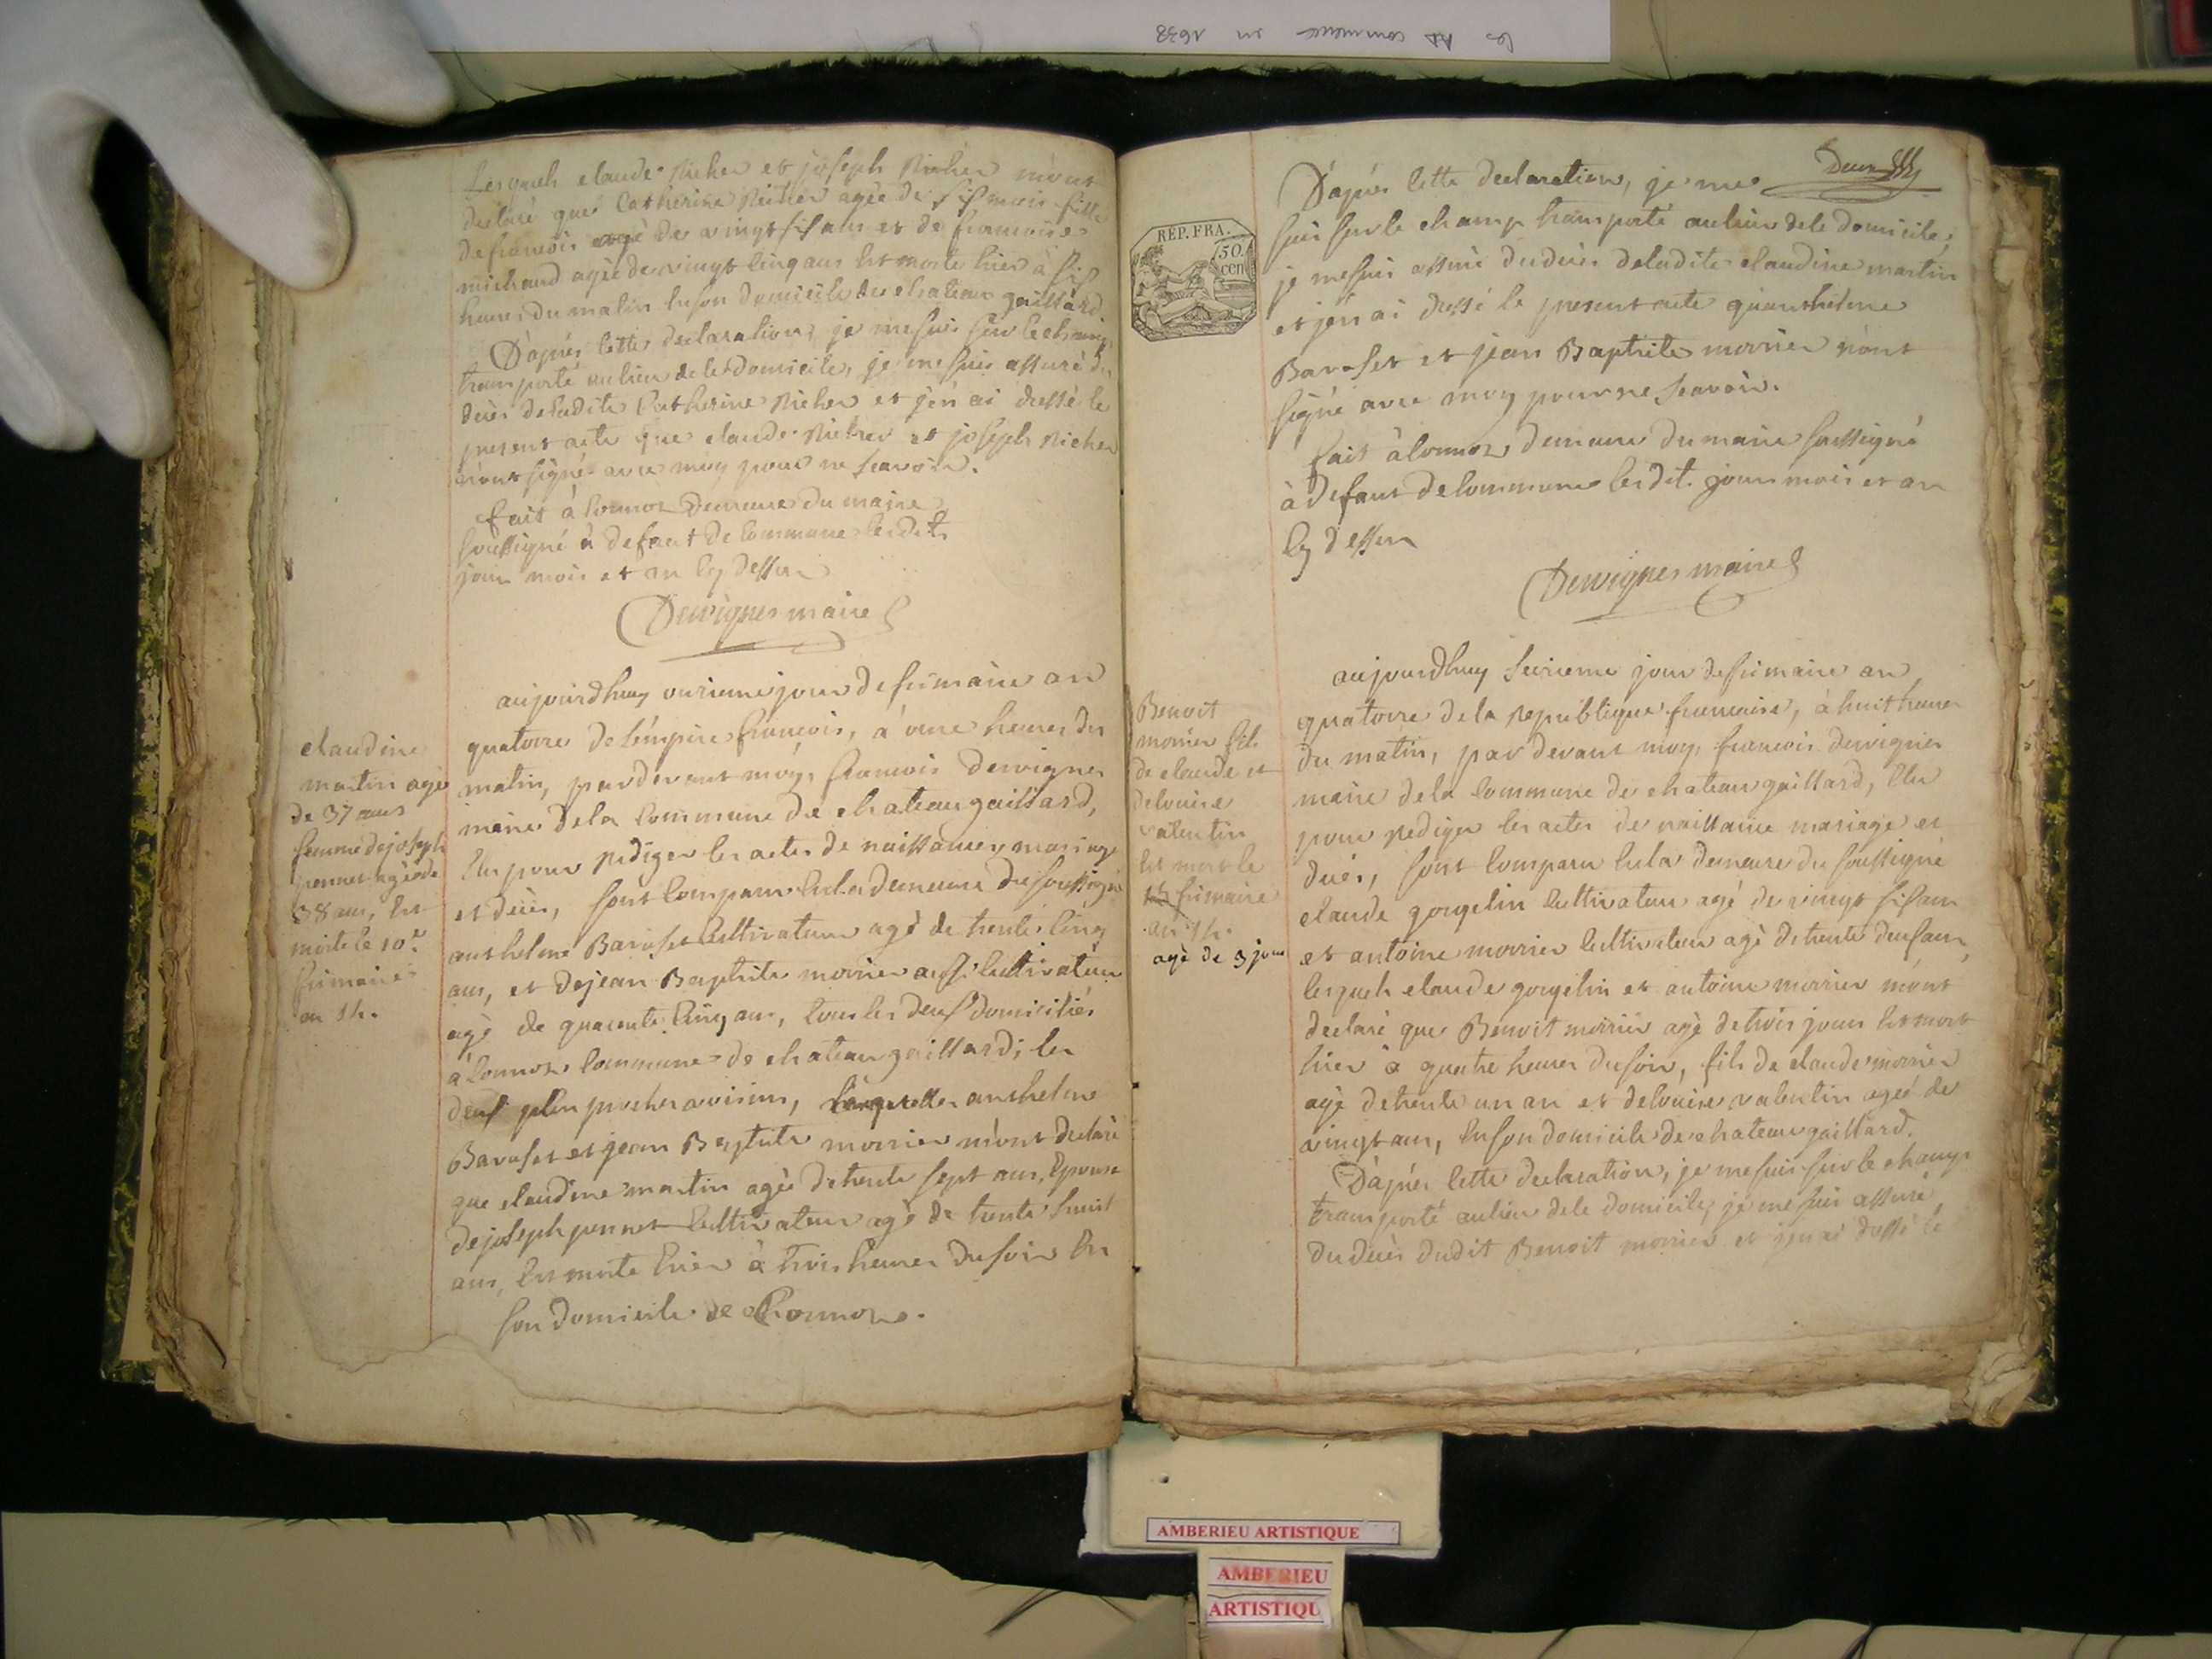 les commence en 1638
Lesquels claude Richer et joseph Richer m'ont
declaré que Catherine Richer agée de six mois fille
de francois agé de vingt six ans et de francoise
michaud agée de vingt cinq ans est morte hier à six
heures du matin en son domicile de chateau gaillard
D'après cette declaration, je me suis sur le champ
transporté au lieu de ce domicile, je me suis assuré du
décès de ladite Catherine Richer et j'én ai dressé le
present acte que claude Richer et joseph Richer
n'ont signé avec moy pour ne scavoir.
fait à Cormoz Demeure du maire
soussigné à defaut de commune lesdits
jour mois et an cy dessus
Dervignes maire
claudine
martin agé
de 37 ans
femme de joseph
pennet agé de
38 ans, est
morte le 10e
frimaire
an 14.
aujourdhuy onzieme jour de frimaire an
quatorze de l'émpire francois, à onze heures du
matin, par devant moy, francois Dervignes
maire de la commune de chateau gaillard,
Elu pour rediger les actes de naissance, mariage
et décès, sont comparus en la demeure du soussigné
anthelme Baroset cultivateur agé de trente cinq
ans, et de jean Baptiste morrier aussi cultivateur
agé de quarente cinq ans, tous les deux domiciliés
à Cormoz commune de chateau gaillard, les
deux plus proches voisins, lesquels anthelme
Baroset et jean Baptiste morrier m'ont declaré
que claudine martin agée de trente sept ans, Epouse
de joseph pennet cultivateur agé de trente huit
ans, est morte hier à trois heures du soir en
son domicile de Cormoz.
REP. FRA.
50
cen
D'après cette declaration, je me
suis sur le champ transporté au lieu de ce domicile,
je me suis assuré du décès de ladite claudine martin
et j'én ai dressé le present acte qu'anthelme
Baroset et jean Baptiste morrier n'ont
signé avec moy pour ne scavoir.
fait à Cormoz demeure du maire soussigné
à defaut de commune lesdit. jour mois et an
cy dessus
Dervignes maire
Benoit
morrier fils
de claude et
de louise
valentin
est mort le
frimaire
an 14.
agé de 3 jours
aujourdhuy seizieme jour de frimaire an
quatorze de la republique francaise, à huit heures
du matin, par devant moy, francois dervignes
maire de la commune de chateau gaillard, Elu
pour rediger les actes de naissance mariage et
décès, sont comparu en la demeure du soussigné
claude gougelin cultivateur agé de vingt six ans
et antoine morrier cultivateur agé de trente deux ans,
lesquels claude gougelin et antoine morrier m'ont
declaré que Benoit morrier agé de trois jours est mort
hier à quatre heures du soir, fils de claude morrier
agé de trente un an et de louise valentin agée de
vingt ans, en son domicile de chateau gaillard.
D'après cette declaration, je me suis sur le champ
transporté au lieu de ce domicile, je me suis assuré
du décès dudit Benoit morrier et j'en ai dressé le
AMBERIEU ARTISTIQUE
AMBERIEU
ARTISTIQU